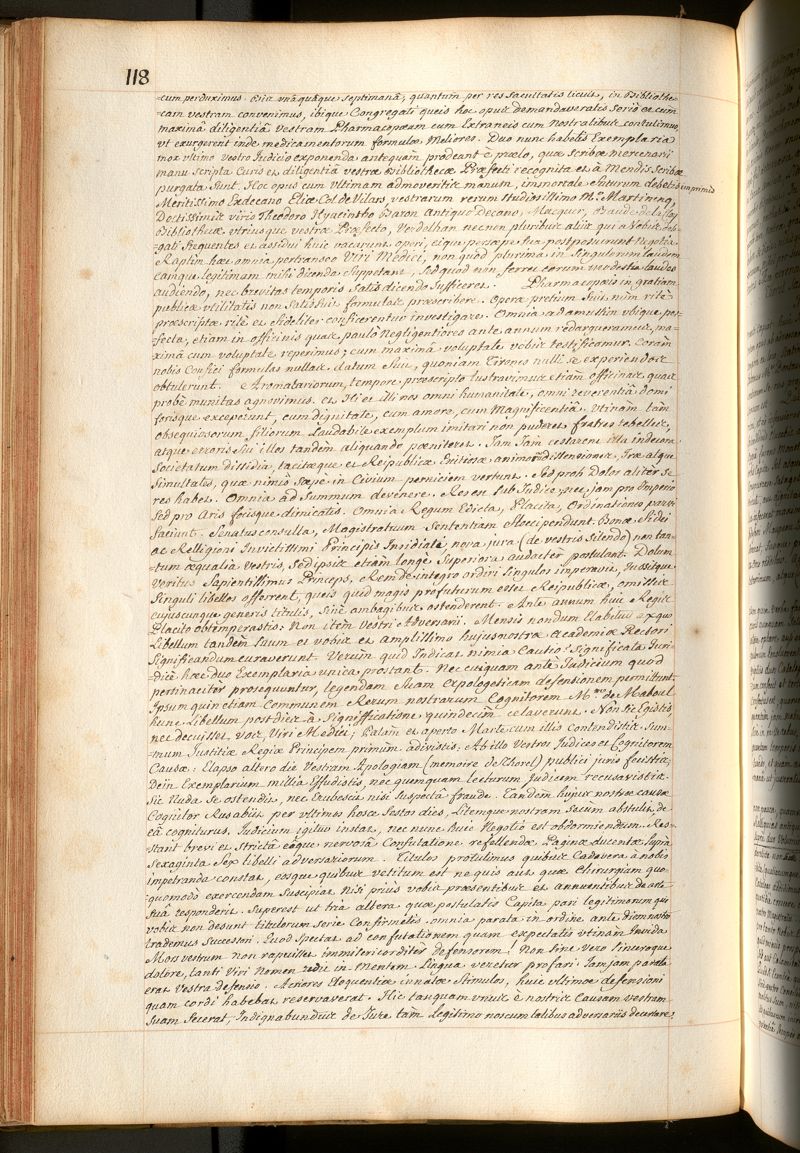 118
=cum perduximus. Bis unâ quâque septimanâ, quantum per res facultatis licuit, in Bibliothe=
cam vestram convenimus, ibique Congregati queis hoc opus demandaveratis serio ac cum
maximâ diligentiâ vestram Pharmacopœam cum Extraneis cum nostratibus contulimus
ut exurgerent inde medicamentorum formulæ Meliores. Duo nunc habetis Exemplaria
mox ultimo vestro Judicio exponenda antequam prodeant è prælo, quæ scribæ mercenarii
manu scripta Curis et diligentiâ vestræ Bibliothecæ Præfecti recognita et à Mendis scribæ
purgata sunt. Hoc opus cum ultimam admoveritis manum, immortale futurum debebitis imprimis
Meritissimo Exdecano Eliæ Col. de Vilars, vestrarum rerum studiosissimo, Mº Martinenq,
Doctissimis viris Theodoro Hyacintho Baron Antiquo Decano, Macquer, Baude de la Cloy
Bibliothecæ utriusque vestræ Præfecto, Verdelhan necnon pluribus aliis qui a Vobis dele=
gati frequentes et assidui huic vacarunt operi, eique persæpe sua postposuerunt Negotia.
Raptim hæc omnia pertranseo Viri Medici, non quod plurima in singulorum laudem
eamque legitimam mihi dicenda suppetant, sed quod non ferret eorum modestia laudes
audiendo, nec brevitas temporis satis dicendo sufficeret. Pharmacopæis in gratiam
publicæ utilitatis non satis fuit formulas præscribere. Operæ pretium fuit num rite
præscriptæ rite et fideliter conficerentur investigare. Omnia adamussim ubique per=
fecta, etiam in officinis quas paulo negligentiores ante annum redargueramus, ma=
ximâ cum voluptate reperimus; cum maximâ voluptate vobis testificamur. Coram
nobis Confici formulas nullas datum fuit, quoniam Tirones nulli se experiendos
obtulerunt. Aromatariorum, tempore præscripto lustravimus etiam officinas, quas
probè munitas agnovimus. et Hi et illi nos omni humanitate, omni reverentiâ domi
forisque exceperunt, cum dignitate, cum amore, cum Magnificentiâ. Utinam tam
obsequiosorum filiorum laudabile exemplum imitari non puderet fratres rebelles,
atque erroris sui illos tandem aliquando pœniteret. Jam Jam cessarent illa indecora
Societatum dissidia, tacitæque et Reipublicæ Exitiosæ animorum dissensiones, Iræ atque
Simultates, quæ nimis sæpè in Civium perniciem vertunt. Sed proh Dolor aliter se
res habet. Omnia ad Summum devenere. Res en sub Judice, nec jam pro Imperio
sed pro Aris focisque dimicatis. Omnia Regum Edicta, Placita, Ordinationes parvi
faciunt. Senatus consulta, Magistratuum Sententiam floccipendunt. Bonæ fidei
ac Relligioni Invictissimi Principis Insidiati nova jura (de vestris silendo) non tan=
=tum æqualia vestris, sed ipsis etiam longè superiora audacter postulant. Dolum
veritus Sapientissimus Princeps, Rem de integro ordiri singulos imperavit, Jussitque
singuli libellos offerrent, queis quid magis profuturum esset Reipublicæ, omissis
cujuscunque generis titulis, sine ambagibus ostenderent. Ante annum huic Regis
Placito obtemperastis. Non item vestri Adversarii. Mensis nondum Elabitur ex quo
Libellum tandem suum et vobis et amplissimo hujus nostræ Academiæ Rectori
significandum curaverunt. Verum quid Indicat nimia Cautio? Significata Juri=
=dicè hæc duo Exemplaria unica prostant. Nec cuiquam ante Judicium quod
pertinaciter prosequuntur, legendam suam Apologeticam defensionem permittunt.
Ipsum quin etiam communem Rerum nostrarum Cognitorem Mum de Maboul
hunc Libellum post dies à Signifficatione quindecim celaverunt. Non sic Egistis,
nec decuisset vos, Viri Medici; Palam et aperto Marte cum illis contendistis. Sum=
=mum Justitiæ Regiæ Principem primum adivistis. Ab illo Vestros Judices et Cognitorem
Causæ. Elapso altero die Vestram Apologiam (memoire de Chorel) publici juris fecistis.
Dein Exemplarium millia Effudistis, nec quemquam lecturum Judicem recusavistis.
Sic Nuda se ostendit, nec Erubescit nisi suspectâ fraude. Tandem hujus nostræ causæ
Cognitor Rus abiit per ultimos hosce festos dies, Litemque nostram secum abstulit, de
eâ cogniturus. Judicium igitur instat, nec nunc huic Negotio est obdormiendum. Res=
=tant brevi et strictâ eâque nervosâ Confutatione refellendæ Paginæ ducentæ supra
sexaginta sex libelli adversariorum. Titulos protulimus quibus Cadavera a nobis
impetranda constat, eosque quibus vetitum est ne quis aut quæ Chirurgiam quo=
quomodò exercendam suscipiat nisi prius vobis præsentibus et annuentibus de arte
suâ responderit. Superest ut tria altera quæ postulatis Capita pari legitimorum qui
vobis non desunt titulorum serie Confirmetis. omnia parata in ordine ante diem nostro
trademus successori. Quod spectat ad confutationem quam expectatis utinam Invida
Mors vestrum non rapuisset immisericorditer defensorem! Non sine vero sinceroque
dolore, tanti Viri Nomen redit in Mentem. Lingua veretur profari. Jam jam parata
erat vestra defensio. Acriores Eloquentiæ innatæ stimulos, huic ultimæ defensioni
quam cordi habebat reservaverat. Hic tanquam unus è nostris Causam vestram
suam fecerat, Indignabundus de Jure tam legitimo nos cum talibus adversariis decertare;